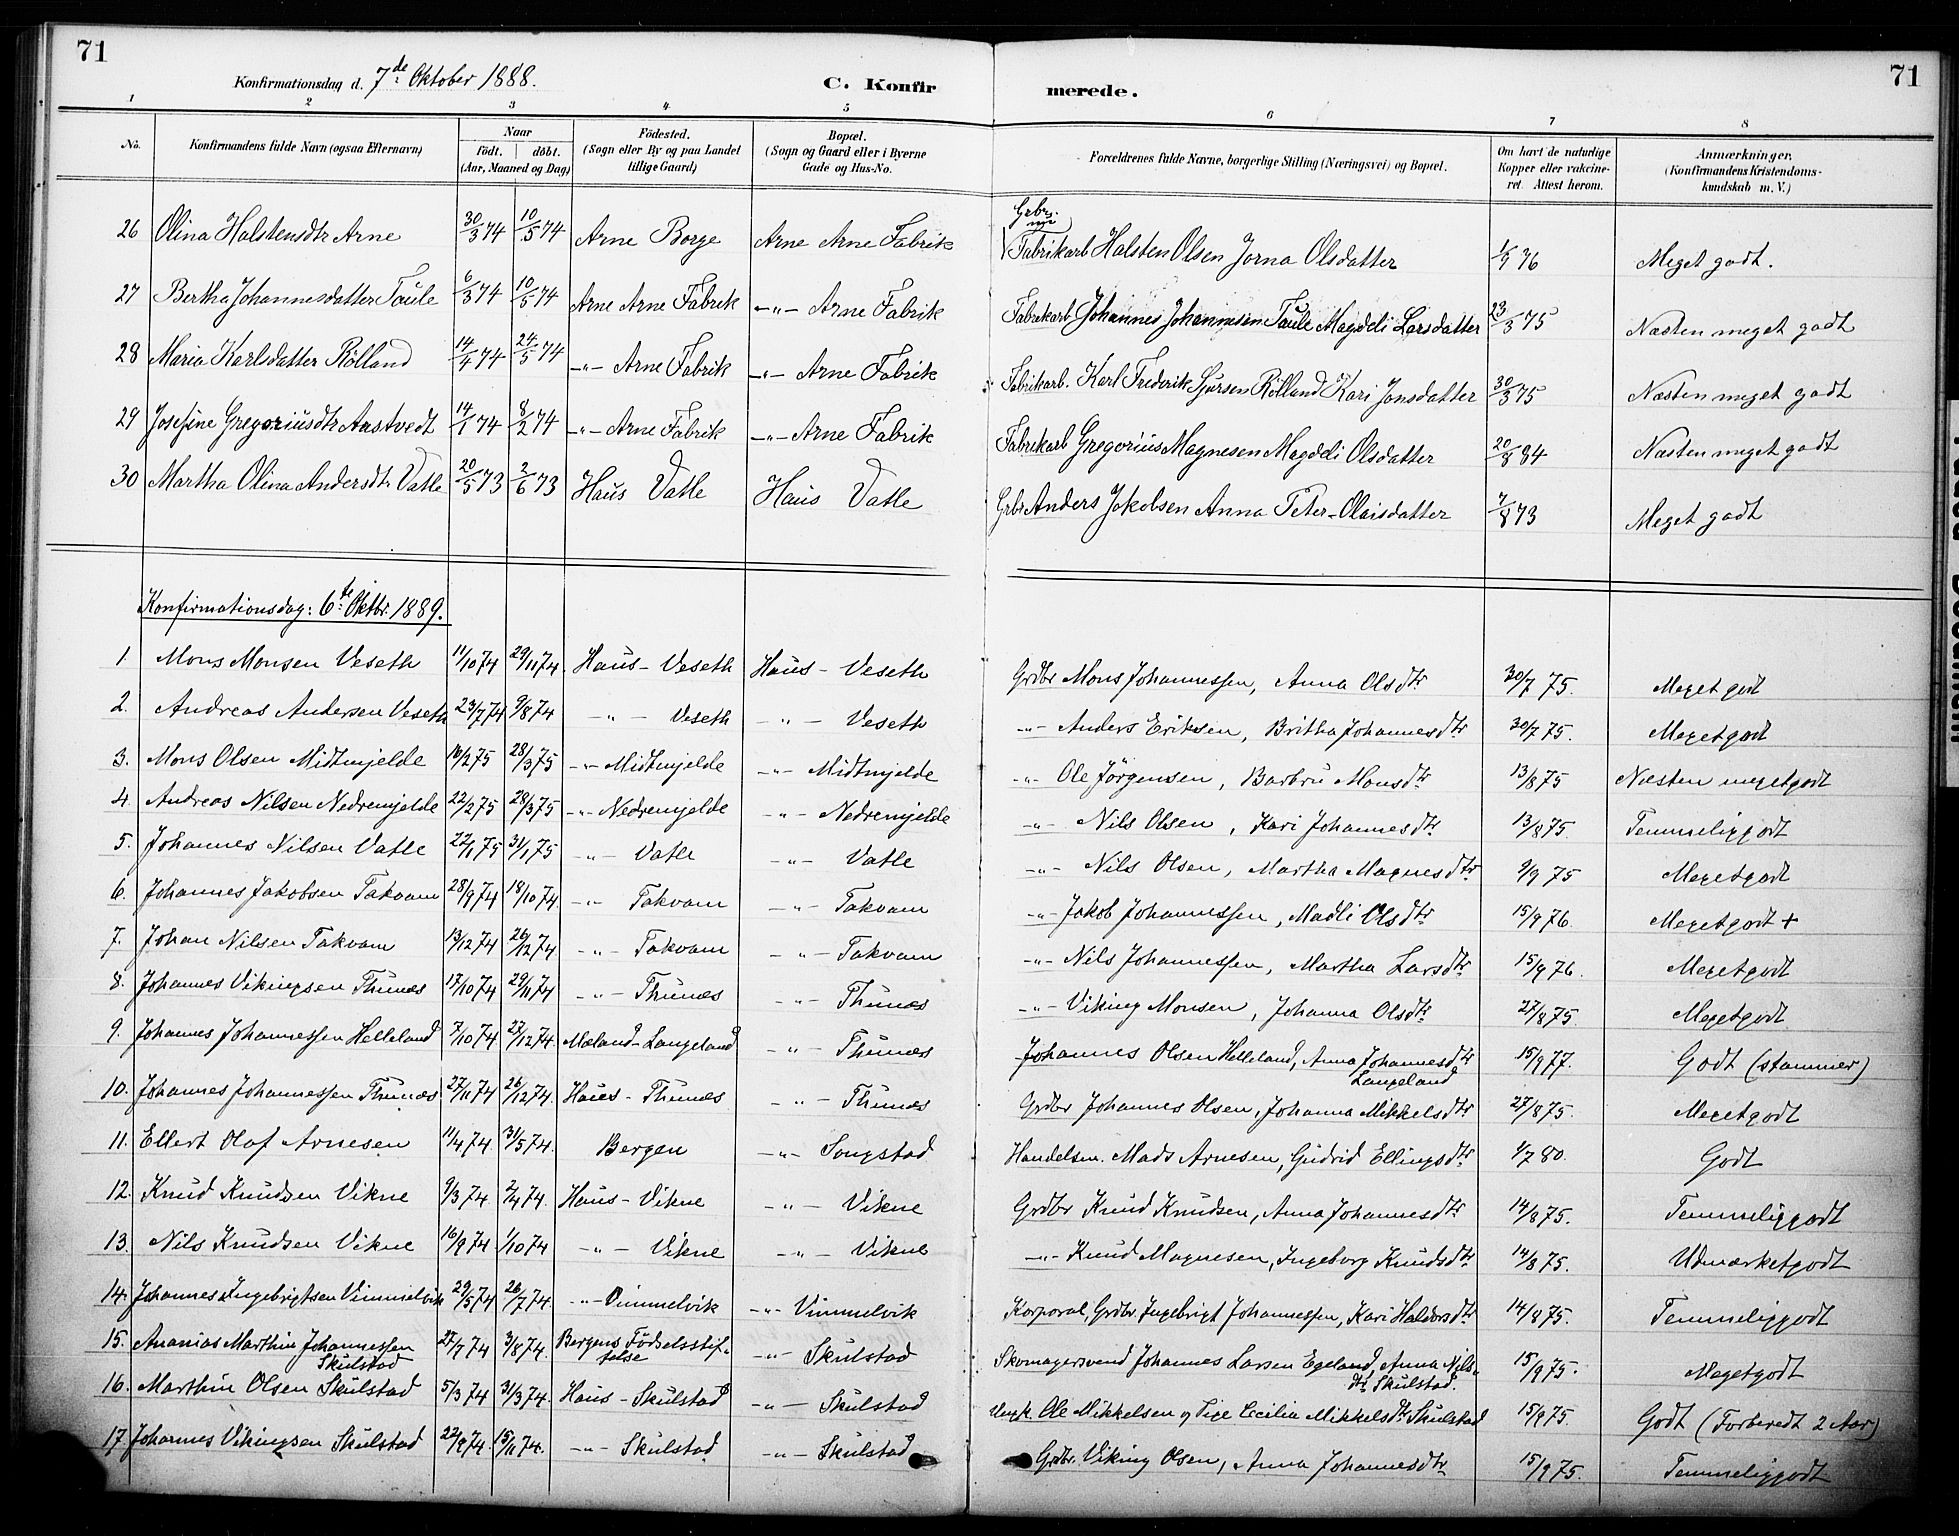 71
Konfirmationsdag d. 7de Oktober 1888.
C. Konfirmerede.
71
1 2 3 4 5 6 7 8
No. Konfirmandens fulde Navn (ogsaa Efternavn) Naar født. døbt. (Aar, Maaned og Dag) Fødested. (Sogn eller By og paa Landet tillige Gaard) Bopæl. (Sogn og Gaard eller i Byerne Gade og Hus-No. Forældrenes fulde Navne, borgerlige Stilling (Næringsvei) og Bopæl. Om havt de naturlige Kopper eller vakcineret. Attest herom. Anmærkninger. (Konfirmandens Kristendomskundskab m. V.)
26 Olina Halstensdtr Arne 30/3 74 10/5 74 Arne Borge Arne Arne Fabrik Fabrikarb Halsten Olsen Jorna Olsdatter 1/9 76 Meget godt.
27 Bertha Johannesdatter Taule 6/3 74 10/5 74 Arne Arne Fabrik -"- Arne Fabrik Fabrikarb Johannes Johannesen Taule Magdeli Larsdatter 23/3 75 Næsten meget godt
28 Maria Karlsdatter Rølland 14/4 74 24/5 74 -"- Arne Fabrik -"- Arne Fabrik Fabrikarb. Karl Frederik Sjursen Rølland Kari Jonsdatter 30/3 75 Næsten meget godt
29 Josefine Gregoriusdtr Aastvedt 14/1 74 8/2 74 -"- Arne Fabrik -"- Arne Fabrik Fabrikarb Gregorius Magnesen Magdeli Olsdatter 20/8 84 Næsten meget godt
30 Martha Olina Andersdt. Vatle 20/5 73 2/6 73 Haus Vatle Haus Vatle Grbr Anders Jakobsen Anna Peter-Olaisdatter 7/8 73 Meget godt
Konfirmationsdag: 6te Oktbr. 1889.
1 Mons Monsen Veseth 11/10 74 29/11 74. Haus - Veseth Haus - Veseth Grdbr Mons Johannessen, Anna Olsdtr. 30/7 75. Megetgodt
2. Andreas Andersen Veseth 23/7 74 9/8 74 -"- Veseth -"- Veseth -"- Anders Eriksen, Britha Johannesdtr. 30/7 75. Megetgodt
3. Mons Olsen Midtmjelde 10/2 75 28/3 75 -"- Midtmjelde -"- Midtmjelde -"- Ole Jørgensen, Barbru Monsdtr. 13/8 75 Næsten megetgodt
4. Andreas Nilsen Nedremjelde 22/2 75 28/3 75 -"- Nedremjelde -"- Nedremjelde -"- Nils Olsen, Kari Johannesdtr. 13/8 75. Temmeliggodt
5. Johannes Nilsen Vatle 22/1 75 31/1 75 -"- Vatle -"- Vatle -"- Nils Olsen, Martha Magnesdtr. 9/9 75 Megetgodt
6. Johannes Jakobsen Takvam 28/9 74 18/10 74. -"- Takvam -"- Takvam -"- Jakob Johannessen, Madli Olsdtr. 15/9 76. Megetgodt +
7. Johan Nilsen Takvam 13/12 74 26/12 74 -"- Takvam -"- Takvam -"- Nils Johannessen, Martha Larsdtr. 15/9 76. Megetgodt
8. Johannes Vikingsen Thunæs 17/10 74 29/11 74 -"- Thunæs -"- Thunæs -"- Viking Monsen, Johanna Olsdtr. 27/8 75. Megetgodt
9. Johannes Johannessen Helleland 7/10 74 27/12 74. Mæland-Langeland -"- Thunæs Johannes Olsen Helleland, Anna Johannesdtr. Langeland 15/9 77. Godt (stammer)
10. Johannes Johannessen Thunæs. 27/11 74 26/12 74. Haus - Thunæs -"- Thunæs Grdbr Johannes Olsen, Johanna Mikkelsdtr. 27/8 75. Megetgodt
11. Ellert Olaf Arnesen 11/4 74. 31/5 74. Bergen -"- Songstad Handelsm. Mads Arnesen, Gudrid Ellingsdtr. 1/7 80. Godt
12. Knud Knudsen Vikne 9/3 74 2/4 74. Haus - Vikne -"- Vikne Grdbr Knud Knudsen, Anna Johannesdtr. 14/8 75. Temmeliggodt
13. Nils Knudsen Vikne 16/9 74 1/10 74 -"- Vikne -"- Vikne -"- Knud Magnesen, Ingeborg Knudsdtr. 14/8 75. Udmærketgodt
14. Johannes Ingebrigtsen Vimmelvik 29/5 74 26/7 74. -"- Vimmelvik -"- Vimmelvik Korporal, Grdbr. Ingebrigt Johannessen, Kari Haldorsdtr. 14/8 75. Temmeliggodt
15. Ananias Marthin Johannessen Skulstad 27/7 74 3/8 74. Bergens Fødselsstiftelse -"- Skulstad Skomagersvend Johannes Larsen Egeland, Anna Nilsdtr. Skulstad. 15/9 75. Megetgodt
16. Marthin Olsen Skulstad 5/3 74 31/3 74. Haus - Skulstad -"- Skulstad Ungk. Ole Mikkelsen og Pige Cecilia Mikkelsdtr. Skulstad 15/9 75. Godt (Forberedt 2 Aar)
17. Johannes Vikingsen Skulstad 22/9 74. 15/11 74. -"- Skulstad -"- Skulstad Grdbr. Viking Olsen, Anna Johannesdtr. 15/9 75. Temmeliggodt